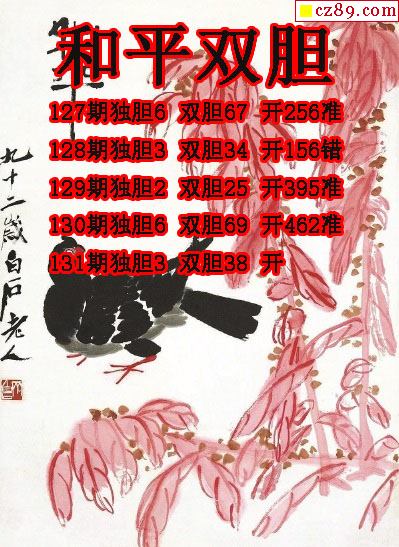 cz89.com
和平双胆
127期独胆6 双胆67 开256准
128期独胆3 双胆34 开156错
129期独胆2 双胆25 开395准
130期独胆6 双胆69 开462准
131期独胆3 双胆38 开
九十二岁白石老人